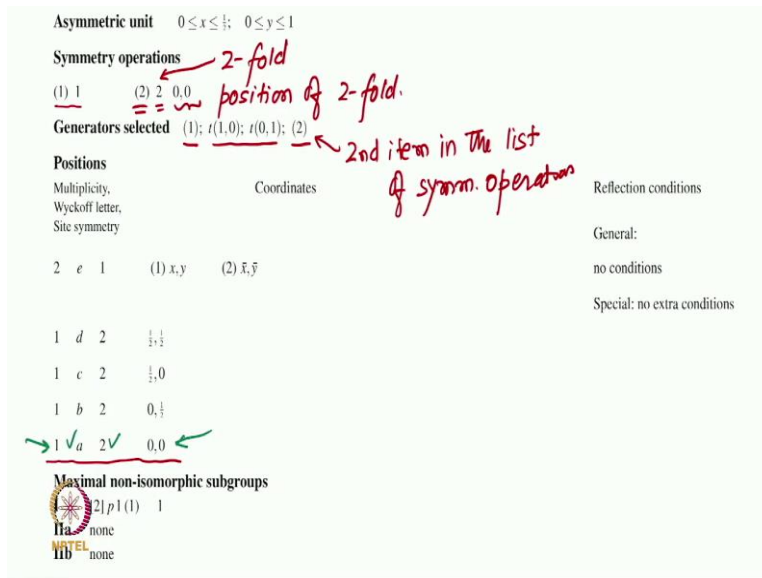 Asymmetric unit 0≤x≤½; 0≤y≤1
Symmetry operations
2-fold
(1) 1 (2) 2 0,0
position of 2-fold.
Generators selected (1); t(1,0); t(0,1); (2)
2nd item in the list
of symm. operations
Positions
Multiplicity,
Wyckoff letter,
Site symmetry
Coordinates
Reflection conditions
General:
2 e 1 (1) x,y (2) x̄,ȳ no conditions
Special: no extra conditions
1 d 2 ½,½
1 c 2 ½,0
1 b 2 0,½
→ 1 √a 2√ 0,0 ←
Maximal non-isomorphic subgroups
[2] p1 (1) 1
IIa none
IIb none
NPTEL